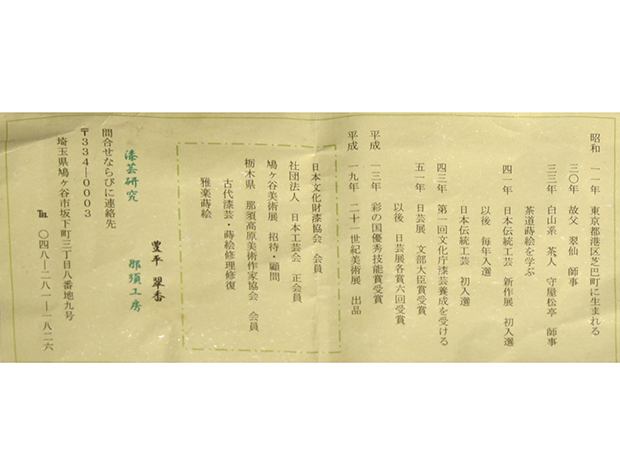 昭和 一一年 東京都港区芝巴町に生まれる
三〇年 故父 翠仙 師事
三三年 白山系 茶人 守屋松亭 師事
茶道蒔絵を学ぶ
四一年 日本伝統工芸 新作展 初入選
以後 毎年入選
日本伝統工芸 初入選
四三年 第一回文化庁漆芸養成を受ける
五一年 日芸展 文部大臣賞受賞
以後 日芸展各賞六回受賞
平成 一三年 彩の国優秀技能賞受賞
平成 一九年 二十一世紀美術展 出品
日本文化財漆協会 会員
社団法人 日本工芸会 正会員
鳩ヶ谷美術展 招待・顧問
栃木県 那須高原美術作家協会 会員
古代漆芸・蒔絵修理修復
雅楽蒔絵
豊平 翠香
漆芸研究 那須工房
問合せならびに連絡先
〒334―0003
埼玉県鳩ヶ谷市坂下町三丁目八番地九号
℡ 〇四八―二八一―一八二六